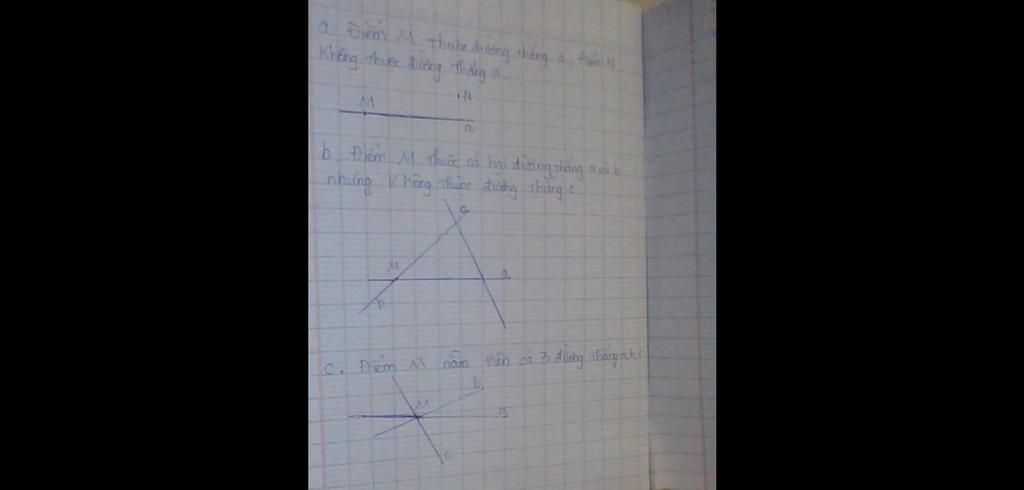 a. Điểm M thuộc đường thẳng a, điểm N
Không thuộc đường thẳng a.
M
.N
a
b. Điểm M thuộc cả hai đường thẳng a và b
nhưng Không thuộc đường thẳng c
c
M
a
b
c. Điểm M nằm trên cả 3 đường thẳng a, b, c
b
M
a
c